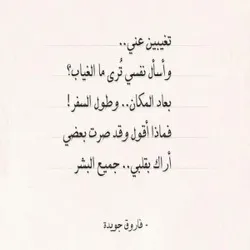 تغيبين عني..
وأسأل نفسي تُرى ما الغياب؟
بعاد المكان.. وطول السفر!
فماذا أقول وقد صرت بعضي
أراك بقلبي.. جميع البشر
- فاروق جويدة